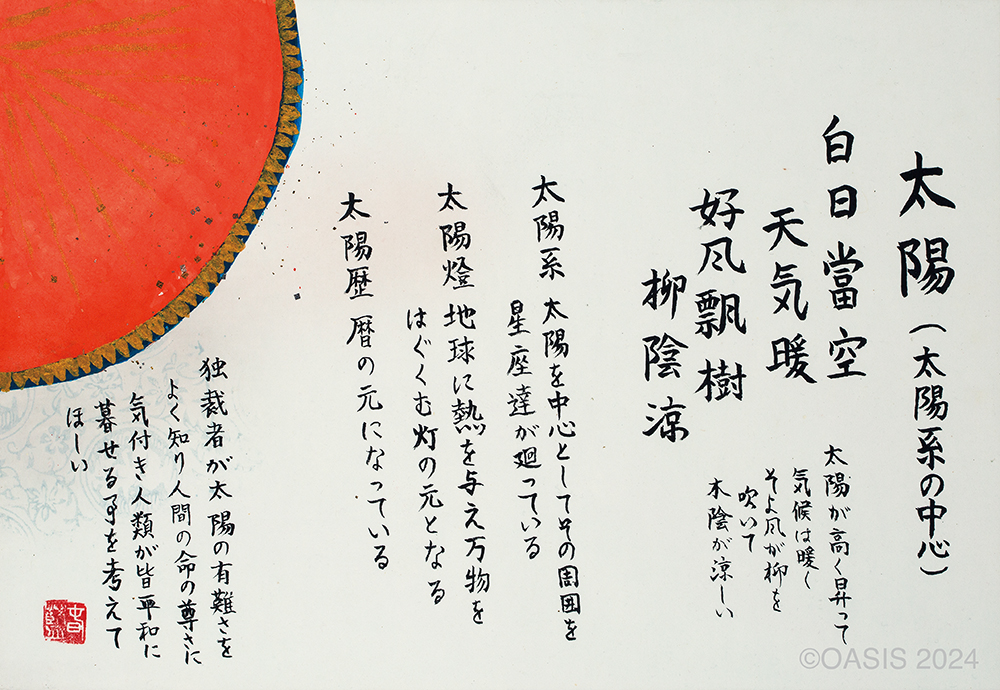 太陽(太陽系の中心)
白日當空
天気暖
好风飄樹
柳陰涼
太陽が高く昇って
気候は暖く
そよ风が柳を
吹いて
木陰が涼しい
太陽系 太陽を中心としてその周囲を
星座達が廻っている
太陽燈 地球に熱を与え万物を
はぐくむ灯の元となる
太陽歴 暦の元になっている
独裁者が太陽の有難さを
よく知り人間の命の尊さに
気付き人類が皆平和に
暮せる事を考えて
ほしい
©OASIS 2024